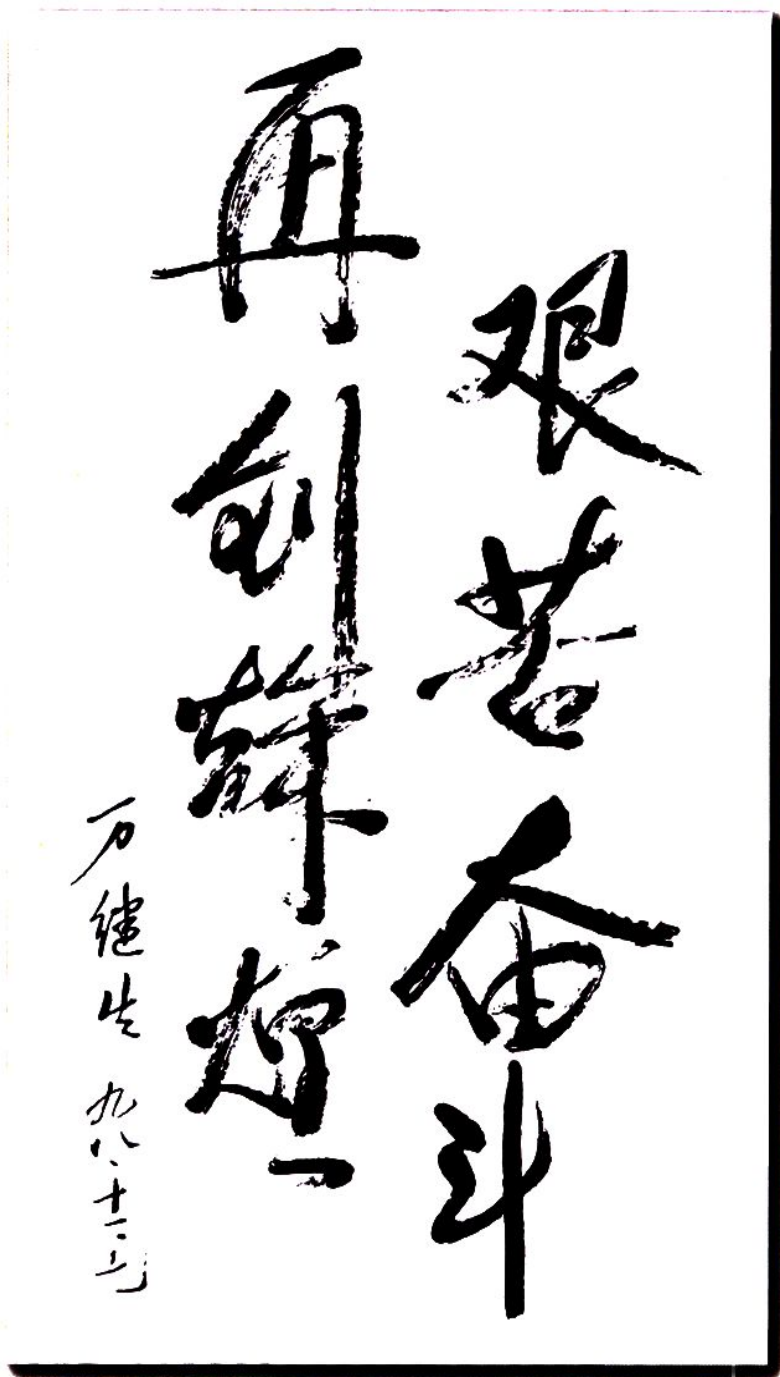 艰苦奋斗
再创辉煌
万继生 九八、十一、